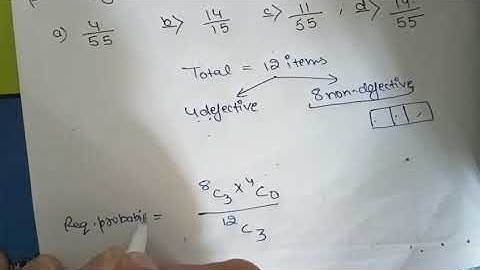 a) 4/55 b) 14/15 c) 11/55, d) 14/55
Total = 12 items
4 defective 8 non-defective
Req. probabili = ⁸C₃ × ⁴C₀ / ¹²C₃